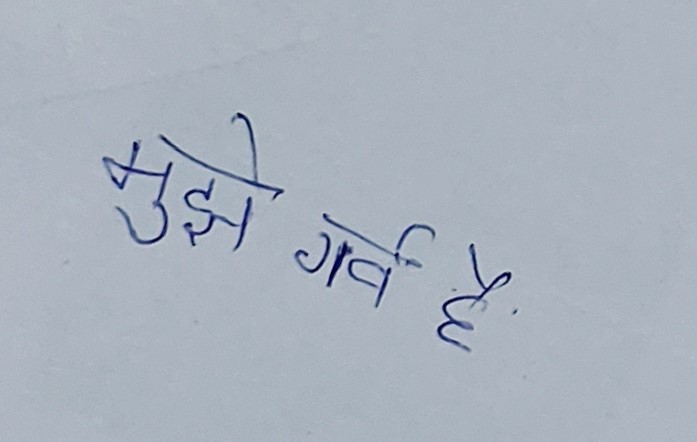 मुझे गर्व है